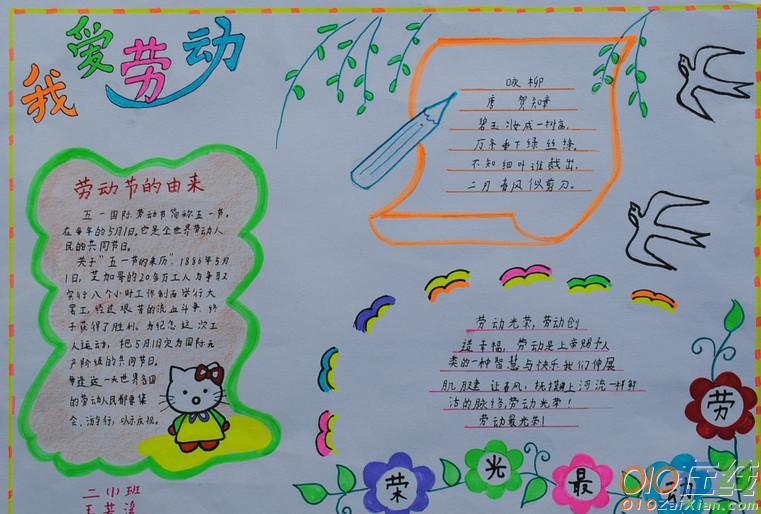 我爱劳动
劳动节的由来
五一国际劳动节简称五一节,
在每年的5月1日。它是全世界劳动人
民的共同节日。
关于"五一节的来历",1886年5月
1日,芝加哥的20多万工人为争取
实行八个小时工作制而举行大
罢工,经过艰苦的流血斗争,终
于获得了胜利。为纪念这次工
人运动,把5月1日定为国际无
产阶级的共同节日。
每逢这一天世界各国
的劳动人民都要集
会、游行,以示庆祝。
二(1)班
咏柳
唐 贺知章
碧玉妆成一树高,
万条垂下绿丝绦。
不知细叶谁裁出,
二月春风似剪刀。
劳动光荣,劳动创
造幸福,劳动是上帝赐予人
类的一种智慧与快乐我们伸展
肌腱 让春风,抚摸上河流一样鲜
活的脉络,劳动光荣!
劳动最光荣!
劳
动
最
光
荣
010在线
010zaixian.com